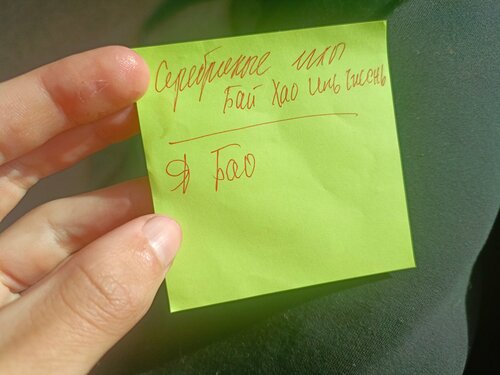 Серебряные иглы
Бай Хао Инь Чжень
Я Бао